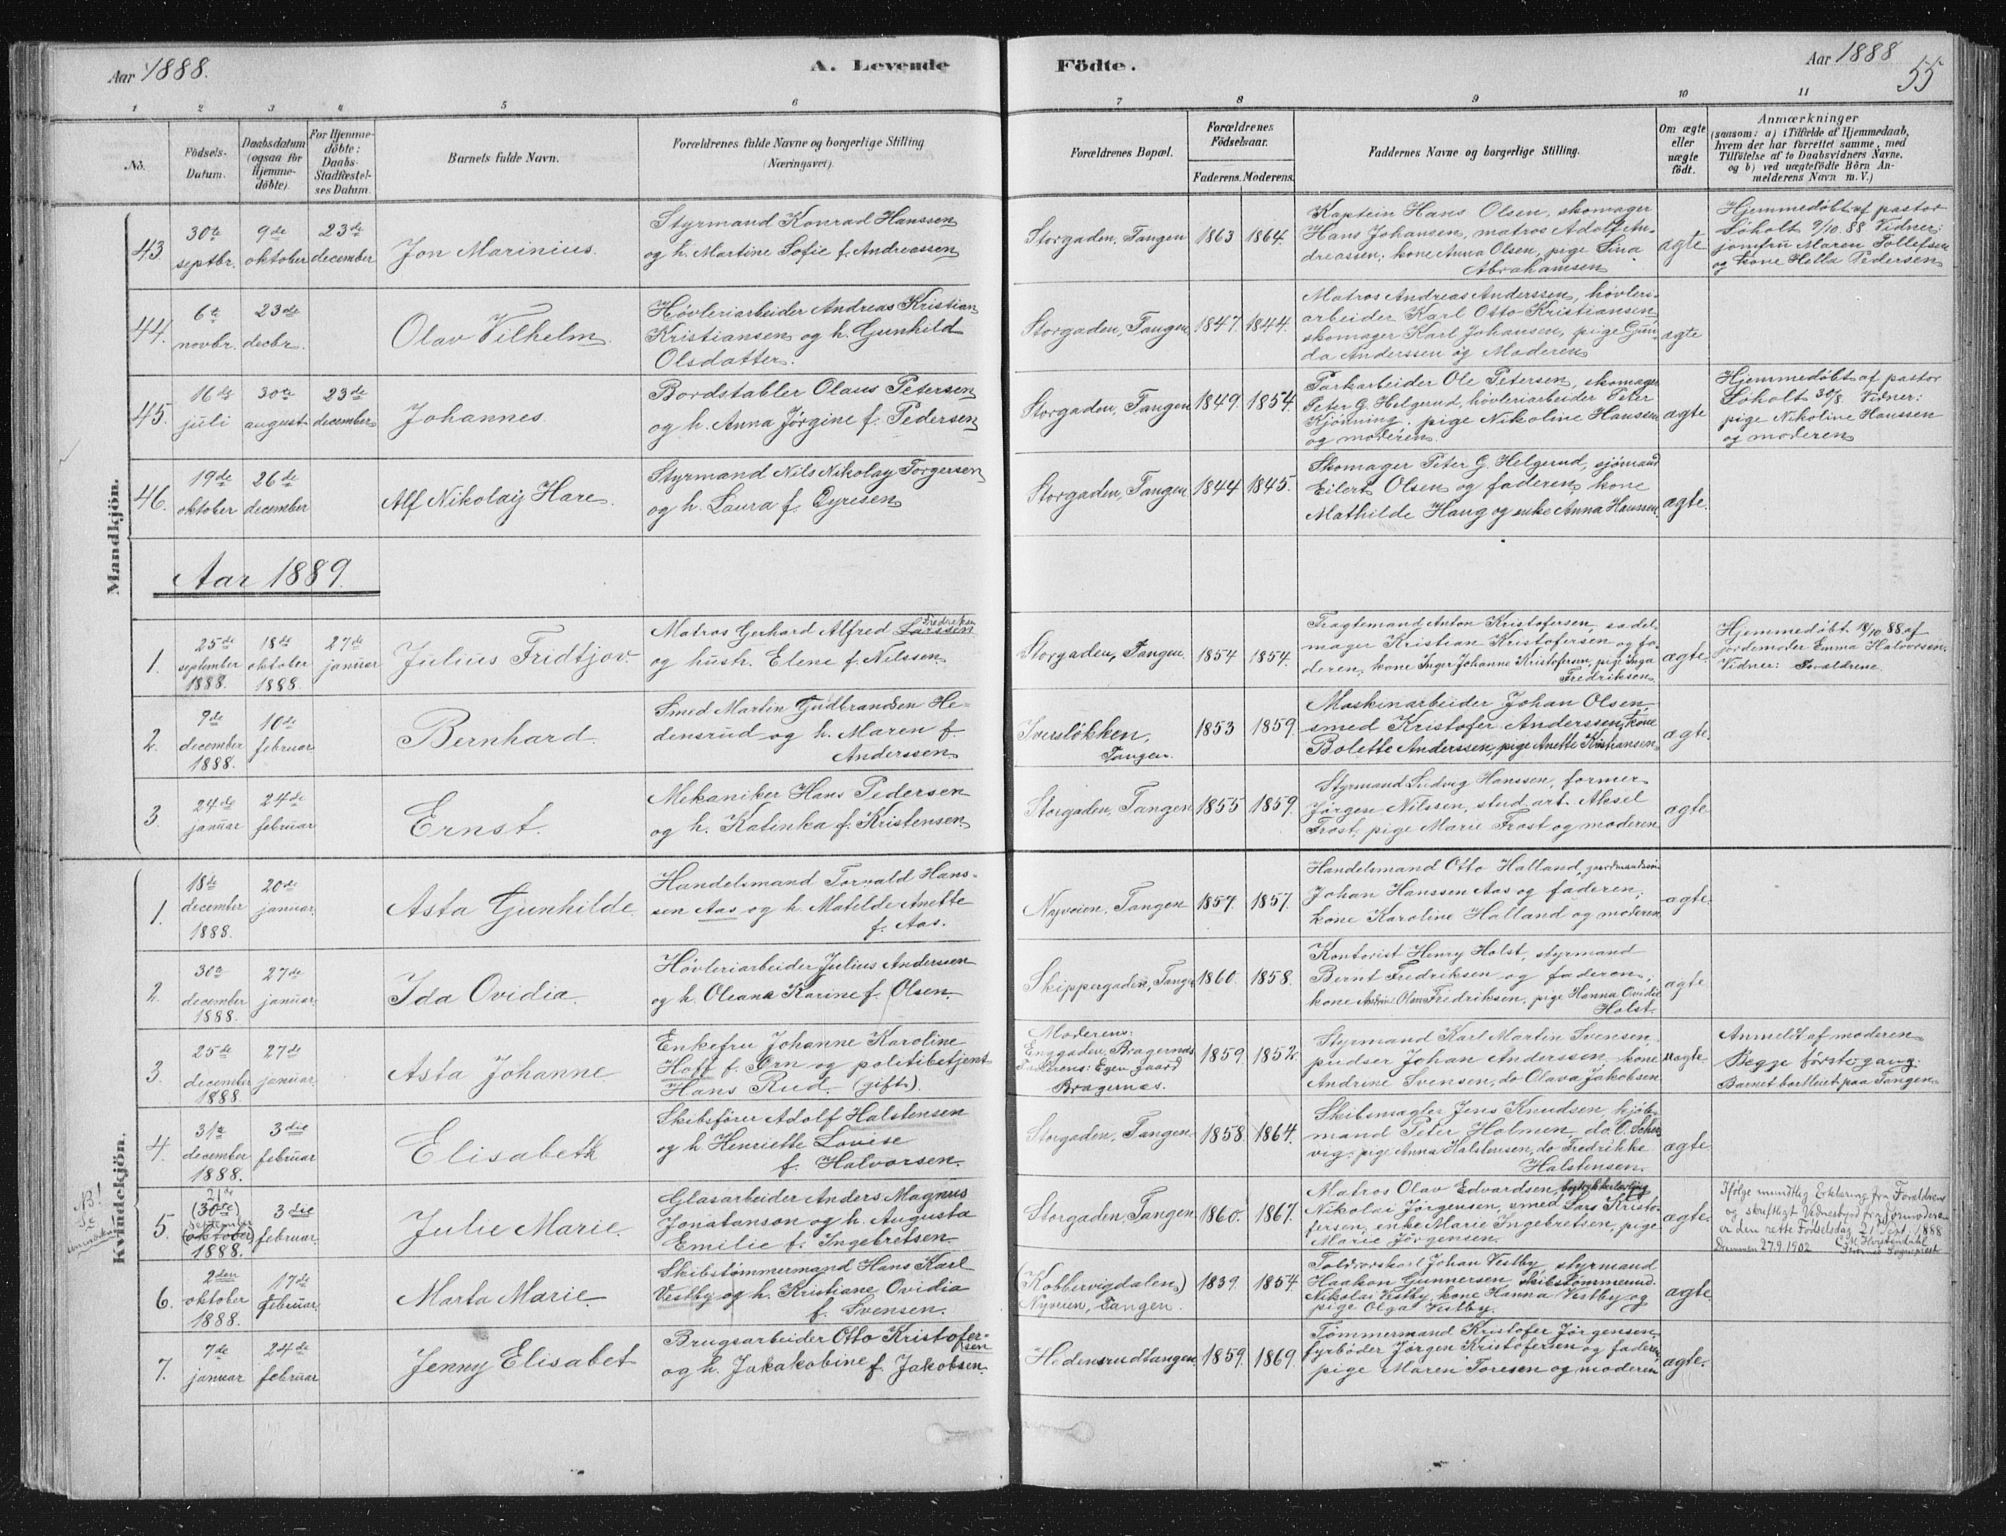 Aar 1888.
A. Levende Födte.
Aar 1888
55
1 2 3 4 5 6 7 8 9 10 11
No.
Födsels-
Datum.
Daabsdatum
(ogsaa for
Hjemme-
döbte).
For Hjemme-
döbte:
Daabs-
Stadfæstel-
ses Datum.
Barnets fulde Navn.
Forældrenes fulde Navne og borgerlige Stilling
(Næringsvei).
Forældrenes Bopæl.
Forældrenes
Födselsaar.
Faderens. Moderens.
Faddernes Navne og borgerlige Stilling.
Om ægte
eller
uægte
födt.
Anmærkninger
(saasom: a) i Tilfælde af Hjemmedaab,
hvem der har forrettet samme, med
Tilföielse af to Daabsvidners Navne,
og b) ved uægtefödte Börn An-
melderens Navn m. V.)
Mandkjön.
43.
30te
septbr.
9de
oktober
23de
december
Jon Marinius.
Styrmand Konrad Hanssen
og h. Martine Sofie f. Andreassen
Storgaden, Tangen
1863
1864.
Kaptein Hans Olsen, skomager
Hans Johansen, matros Adolf An-
dreassen; kone Anna Olsen, pige Lina
Abrahamsen
ægte
Hjemmedøbt af pastor
Søholt 9/10 88 Vidner:
jomfru Maren Tollefsen
og kone Hella Pedersen
44.
6te
novbr.
23de
decbr.
Olav Vilhelm.
Høvleriarbeider Andreas Kristian
Kristiansen og h. Gunhild
Olsdatter.
Storgaden, Tangen
1847.
1844.
Matros Andreas Anderssen, høvleri-
arbeider Karl Otto Kristiansen
skomager Karl Johansen, pige Gun-
da Anderssen og Moderen
ægte
45.
16de
juli
30te
august
23de
december
Johannes.
Bordstabler Olaus Petersen
og h. Anna Jørgine f. Pedersen
Storgaden, Tangen
1849.
1854.
Parkarbeider Ole Petersen, skomager
Peter G. Helgerud, høvleriarbeider Peter
Kjønning, pige Nikoline Hansen
og moderen.
ægte
Hjemmedøbt af pastor
Søholt 30/8. Vidner:
pige Nikoline Hanssen
og moderen
46.
19de
oktober
26de
december
Alf Nikolaij Hare.
Styrmand Nils Nikolay Torgersen
og h. Laura f. Qyresen
Storgaden, Tangen
1844
1845.
Skomager Peter G. Helgerud, sjømand
Eilert Olsen og faderen, kone
Mathilde Haug og enke Anna Hanssen.
ægte.
Aar 1889.
1.
25de
september
1888.
18de
oktober
1888.
27de
januar
Julius Fridtjov.
Matros Gerhard Alfred Larssen Fredriksen
og hustr. Elene f. Nilssen.
Storgaden, Tangen.
1854
1854.
Fragtemand Anton Kristofersen, sadel-
mager Kristian Kristofersen og fa-
deren, kone Inger Johanne Kristofersen, pige Inga
Fredriksen
ægte
Hjemmedøbt 18/10 88 af
jordemoder Emma Halvorsen.
Vidner: Forældrene.
2.
9de
december
1888.
10de
februar
Bernhard.
Smed Martin Gudbrandsen He-
densrud og h. Maren f.
Anderssen
Iversløkken,
Tangen.
1853
1859.
Maskinarbeider Johan Olsen,
smed Kristofer Anderssen, kone
Bolette Anderssen, pige Anette Kristiansen
ægte.
3.
24de
januar
24de
februar
Ernst.
Mekaniker Hans Pedersen
og h. Katinka f. Kristensen
Storgaden, Tangen
1855
1859.
Styrmand Ludvig Hanssen, former
Jørgen Nilssen, stud. art. Aksel
Frost, pige Marie Frost og moderen
ægte
Kvindekjön.
1.
18de
december
1888.
20de
januar.
Asta Gunhilde.
Handelsmand Torvald Hans-
sen Aas og h. Matilde Anette
f. Aas.
Nyveien, Tangen
1857.
1857.
Handelsmand Otto Halland,
Johan Hanssen Aas og faderen;
kone Karoline Halland og moderen
ægte.
2.
30te
december
1888.
27de
januar.
Ida Ovidia.
Høvleriarbeider Julius Andersen
og h. Oleana Karine f. Olsen.
Skippergaden, Tangen
1860.
1858.
Kontorist Henry Holst, styrmand
Bernt Fredriksen og faderen;
kone Olsen Fredriksen, pige Hanna Ovidie
Holst.
ægte
3.
25de
december
1888.
27de
januar.
Asta Johanne
Enkefru Johanne Karoline
Hoff f. Ørn og politibetjent
Hans Rud. (gift).
Moderens:
Enggaden, Bragernes
Faderens: Egen gaard
Bragernes.
1859.
1852
Styrmand Karl Martin Svensen,
pudser Johan Anderssen, kone
Andrine Svensen, do Olava Jakobsen
uægte
Anmeldt af moderen
Begge første gang.
Barnet bortleiet paa Tangen.
4.
31te
december
1888.
3die
februar.
Elisabeth
Skibsfører Adolf Halstensen
og h Henriette Lovise
f. Halvorsen.
Storgaden, Tangen.
1858.
1864.
Skibsmægler Jens Knudsen, kjøb-
mand Peter Holmen, do O. Scher-
vig, pige Anna Halstensen, do Fredrikke
Halstensen.
ægte
NB!
5.
21de
(30te)
september
(oktober)
1888.
3die
februar.
Julie Marie.
Glasarbeider Anders Magnus
Jonatanson og h. Augusta
Emilie f. Ingebretsen.
Storgaden, Tangen
1860.
1867.
Matros Olav Edvardsen,
Nikolai Jørgensen, smed Lars Kristo-
fersen, enke Marie Ingebretsen, pige
Marie Jørgensen.
ægte
Ifølge mundtlig Erklæring fra Forældrene
og skriftligt Vidnesbyrd fra Jordmoderen
er den rette Fødselsdag 21 Sept. 1888
Drammen 27.9.1902
6.
2den
oktober
1888.
17de
februar.
Marta Marie.
Skibstømmermand Hans Karl
Vestby og h. Kristiane Ovidia
f. Svensen.
(Kobbervigdalen)
Nyveien, Tangen.
1839.
1854
Toldvorskarl Johan Vestby, styrmand
Haakon Gunnersen, skibstømmermd.
Nikolai Vestby, kone Hanna Vestby og
pige Olga Vestby.
ægte
7.
7de
januar
24de
februar
Jenny Elisabet
Brugsarbeider Otto Kristofer-
sen
og h. Jakakobine f. Jakobsen.
Hedensrudtangen.
1859.
1869.
Tømmermand Kristofer Jørgensen,
fyrbøder Jørgen Kristofersen og faderen,
pige Maren Toresen og moderen
ægte.